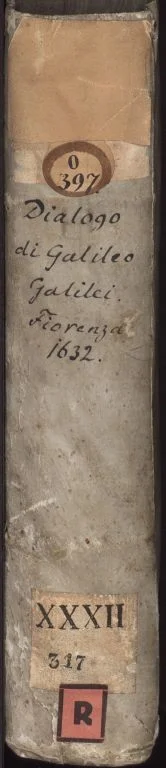 O
397.
Dialogo
di Galileo
Galilei.
Fiorenza
1632.
XXXII
317
R